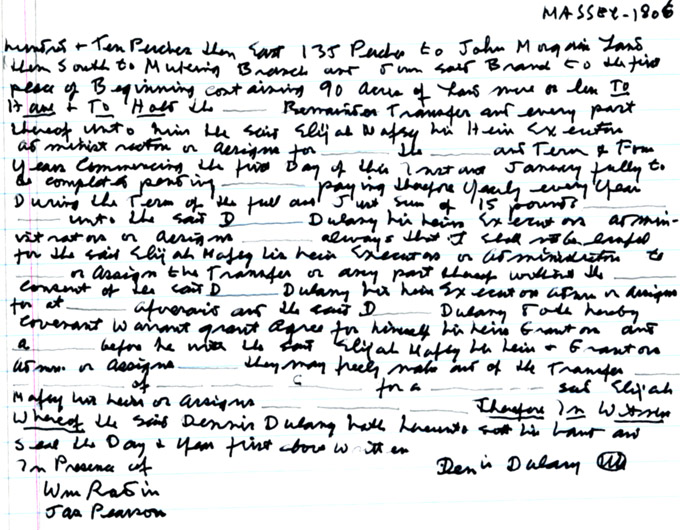 MASSEY-1806
hundred + Ten Perches then East 135 Perches to John Morgain Land
then South to Mutering Branch and Run said Branch to the first
place of Beginning containing 90 Acres of Land more or less To
Have + To Hold the ____ Remainder Transfer and every part
thereof unto him the said Elijah Mafsey his Heirs Executors
administrators or Assigns for ____ the ____ and Term of Four
Years Commencing the first Day of this Instant January fully to
be completed pending ____ paying therefore Yearly every Year
During the Term of the full and Just Sum of 15 pounds ____
____ unto the said D ____ Dulany his heirs Executors admin-
istrators or Assigns ____ always that I shall not be lawful
for the said Elijah Mafsey his heirs Executors or administrators to
____ or Assign the Transfer or any part thereof without the ____
consent of the said D ____ Dulany his heirs Executors admn or assigns
for at ____ aforesaid and the said D ____ Dulany doth hereby
Covenant Warrant grant Agree for himself his heirs Grantors and
a ____ before he with the said Elijah Mafsey his heirs + Grantors
admn. or Assigns ____ they may freely make out of the Transfer ____
____ of ____ for a ____ said Elijah
Mafsey his heirs or Assigns ____ Therefore In Witness
Whereof the said Dennis Dulany hath hereunto sett his hand and
Seal the Day + Year first above Written
In Presence of Denis Dulany
Wm
Jas Pearson